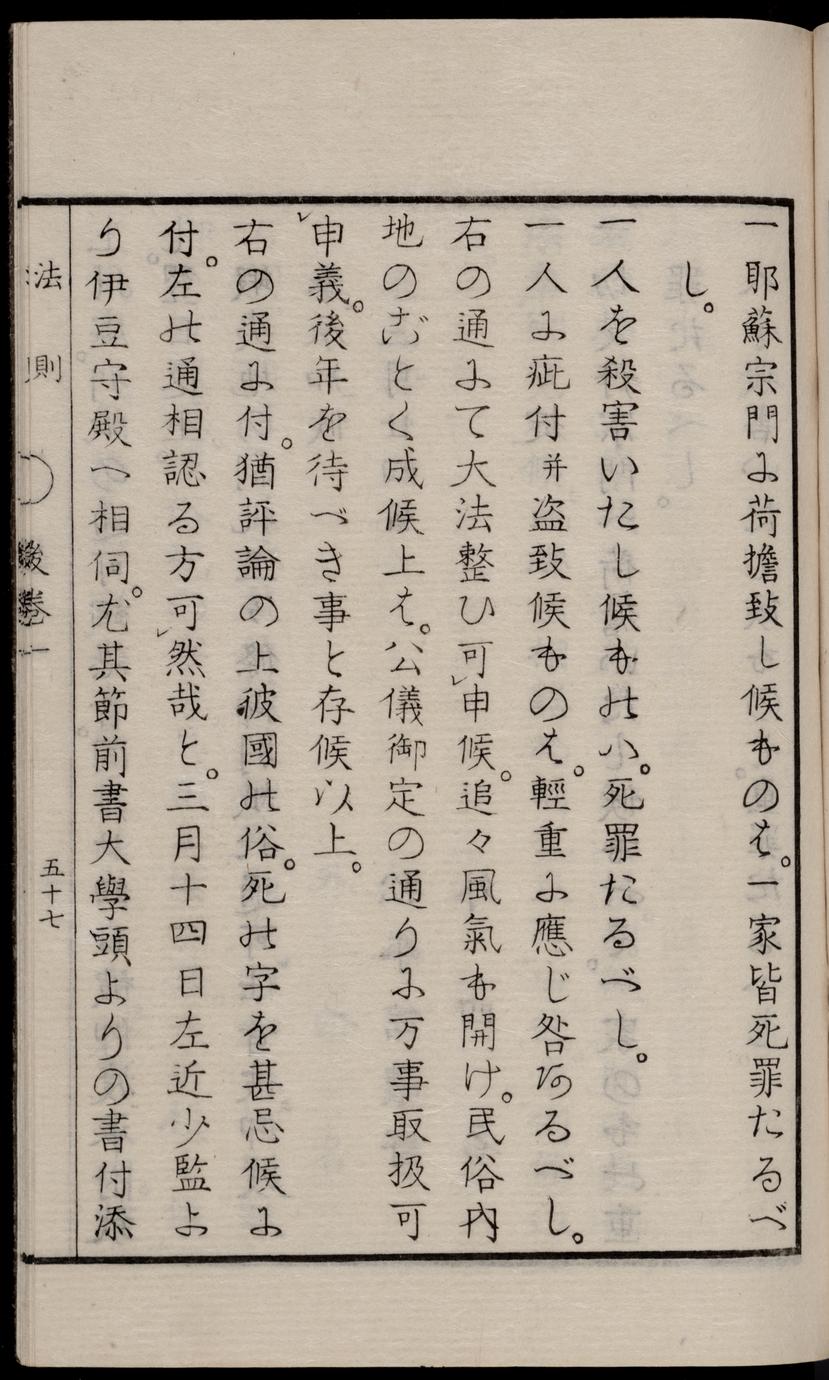 一耶蘇宗門に荷擔致し候ものは。一家皆死罪たるべ
し。
一人を殺害いたし候ものハ。死罪たるべし。
一人に疵付并盗致候ものは。輕重に應じ咎あるべし。
右の通にて大法整ひ可レ申候。追々風氣も開け。民俗内
地のごとく成候上は。公儀御定の通りに万事取扱可
レ申義。後年を待べき事と存候以上。
右の通に付。猶評論の上彼國の俗。死の字を甚忌候に
付。左の通相認る方可レ然哉と。三月十四日左近少監よ
り伊豆守殿へ相伺。尤其節前書大學頭よりの書付添
法則
後卷一
五十七